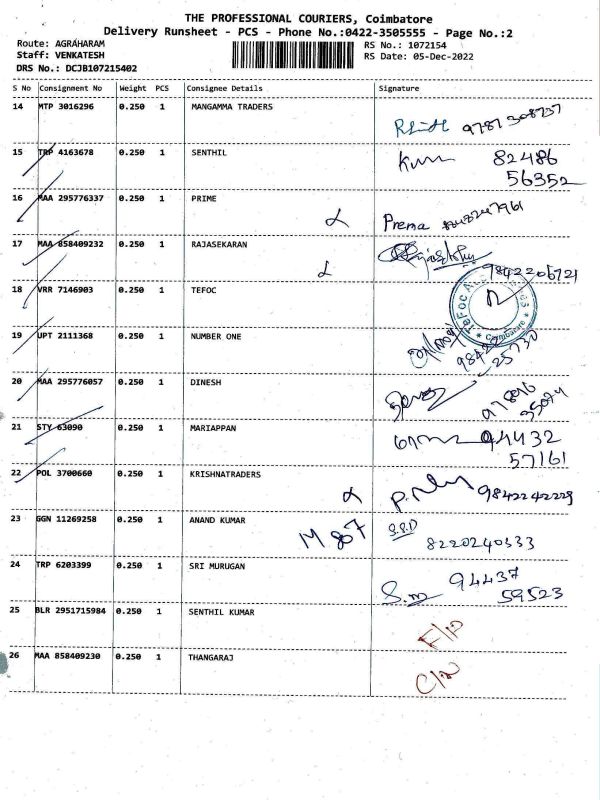 THE PROFESSIONAL COURIERS, Coimbatore
Delivery Runsheet - PCS - Phone No.:0422-3505555 - Page No.:2
Route: AGRAHARAM
Staff: VENKATESH
DRS No.: DCJB107215402
RS No.: 1072154
RS Date: 05-Dec-2022
S No Consignment No Weight PCS Consignee Details Signature
14 MTP 3016296 0.250 1 MANGAMMA TRADERS
15 TRP 4163678 0.250 1 SENTHIL 82486
56352
16 MAA 295776337 0.250 1 PRIME Prema
17 MAA 858409232 0.250 1 RAJASEKARAN
9842206721
18 VRR 7146903 0.250 1 TEFOC
19 UPT 2111368 0.250 1 NUMBER ONE
25730
20 MAA 295776057 0.250 1 DINESH
21 STY 63090 0.250 1 MARIAPPAN 94432
57161
22 POL 3700660 0.250 1 KRISHNATRADERS 9842242229
23 GGN 11269258 0.250 1 ANAND KUMAR
8220240333
24 TRP 6203399 0.250 1 SRI MURUGAN 94437
S.m 59523
25 BLR 2951715984 0.250 1 SENTHIL KUMAR
26 MAA 858409230 0.250 1 THANGARAJ